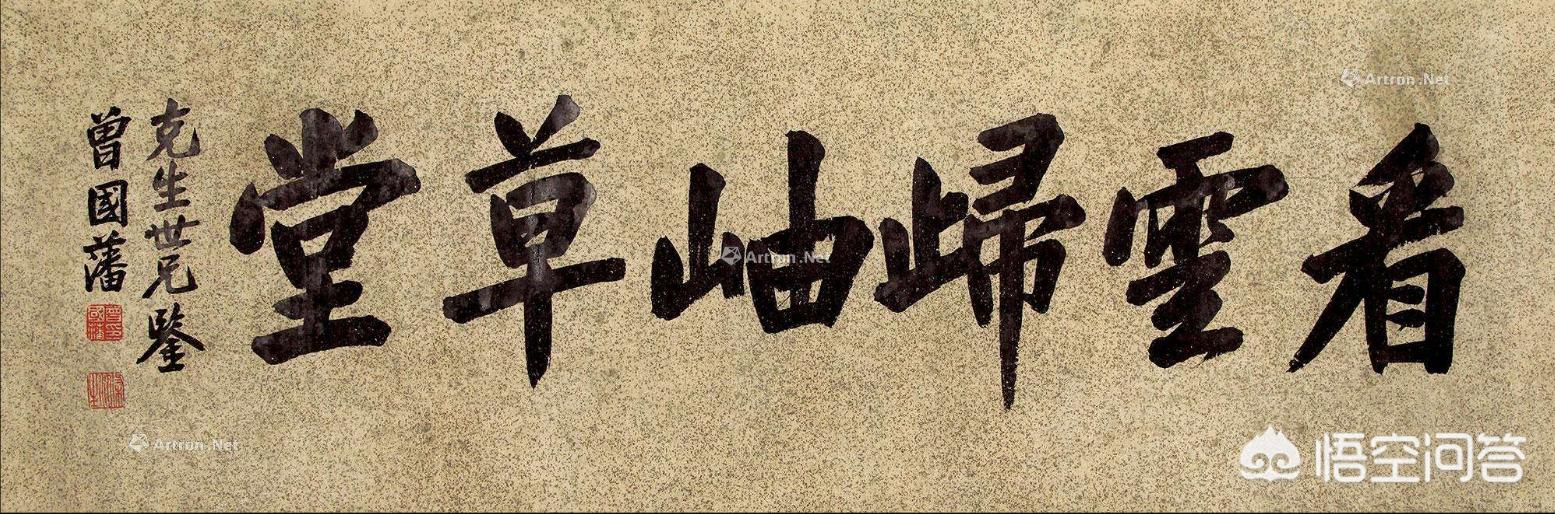 看雲歸岫草堂
克生世兄鑒
曾國藩
Artron.Net
Artron.Net
Artron.Net
悟空问答